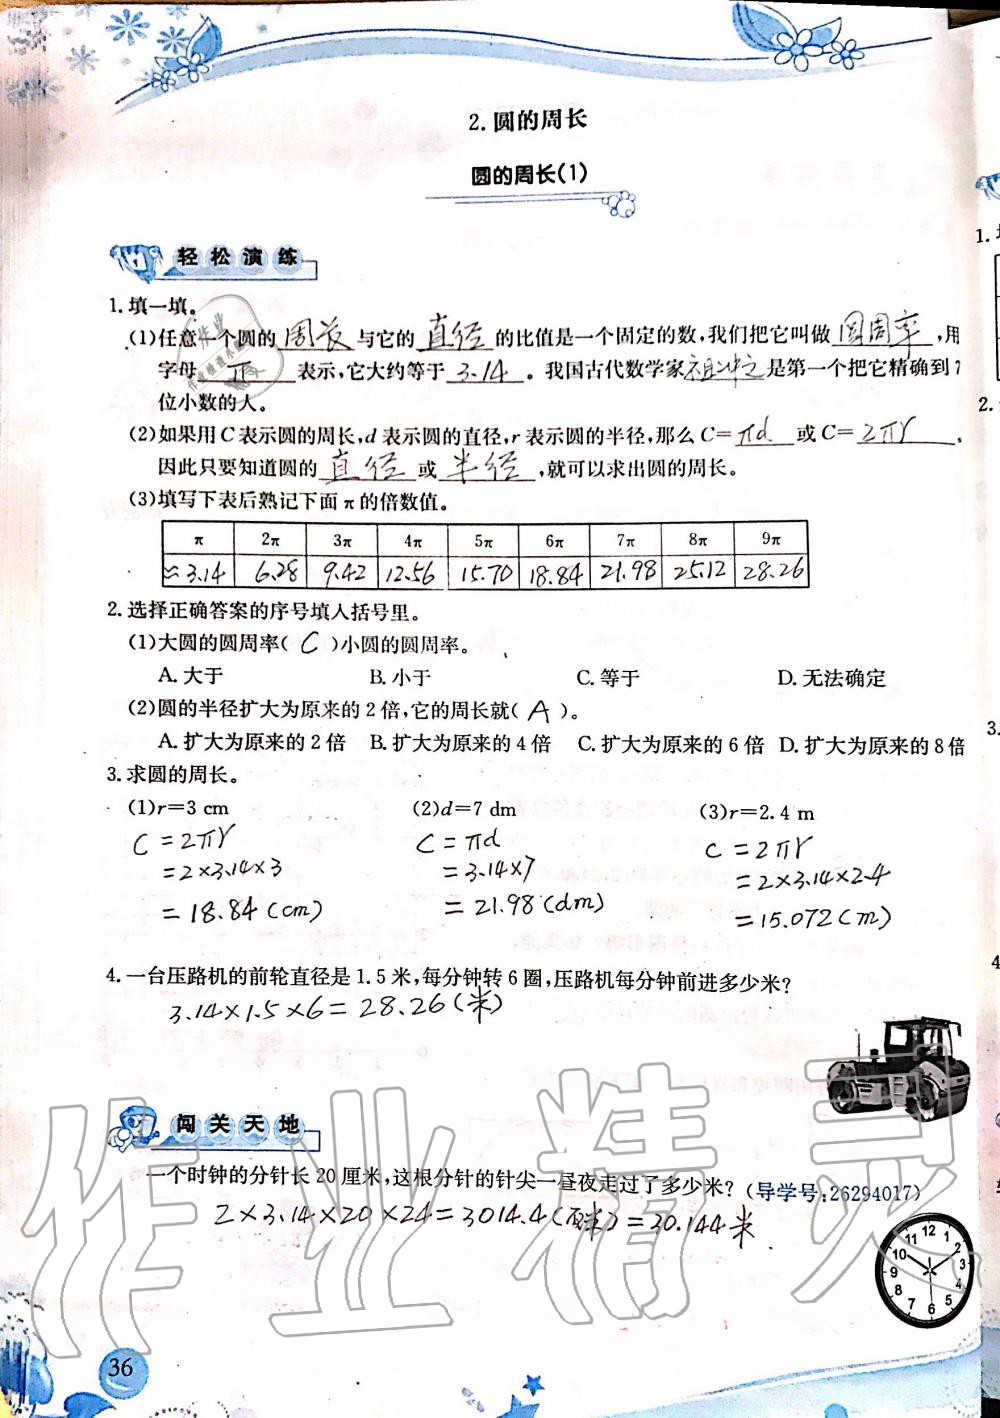 2.圆的周长
圆的周长(1)
轻松演练
1.填一填。
(1)任意一个圆的 周长 与它的 直径 的比值是一个固定的数,我们把它叫做 圆周率 ,用
字母 π 表示,它大约等于 3.14 。我国古代数学家 祖冲之 是第一个把它精确到7
位小数的人。
(2)如果用C表示圆的周长,d表示圆的直径,r表示圆的半径,那么C= πd 或C= 2πr .
因此只要知道圆的 直径 或 半径 ,就可以求出圆的周长。
(3)填写下表后熟记下面π的倍数值。
π 2π 3π 4π 5π 6π 7π 8π 9π
≈3.14 6.28 9.42 12.56 15.70 18.84 21.98 25.12 28.26
2.选择正确答案的序号填入括号里。
(1)大圆的圆周率( C )小圆的圆周率。
A.大于 B.小于 C.等于 D.无法确定
(2)圆的半径扩大为原来的2倍,它的周长就( A )。
A.扩大为原来的2倍 B.扩大为原来的4倍 C.扩大为原来的6倍 D.扩大为原来的8倍
3.求圆的周长。
(1)r=3 cm (2)d=7 dm (3)r=2.4 m
C=2πr C=πd C=2πr
=2×3.14×3 =3.14×7 =2×3.14×2.4
=18.84(cm) =21.98(dm) =15.072(m)
4.一台压路机的前轮直径是1.5米,每分钟转6圈,压路机每分钟前进多少米?
3.14×1.5×6=28.26(米)
闯关天地
一个时钟的分针长20厘米,这根分针的针尖一昼夜走过了多少米?(导学号:26294017)
2×3.14×20×24=3014.4(厘米)=30.144米
12 1 2 3 4 5 6 7 8 9 10 11
36
作业精灵
1.
2.
3.
4